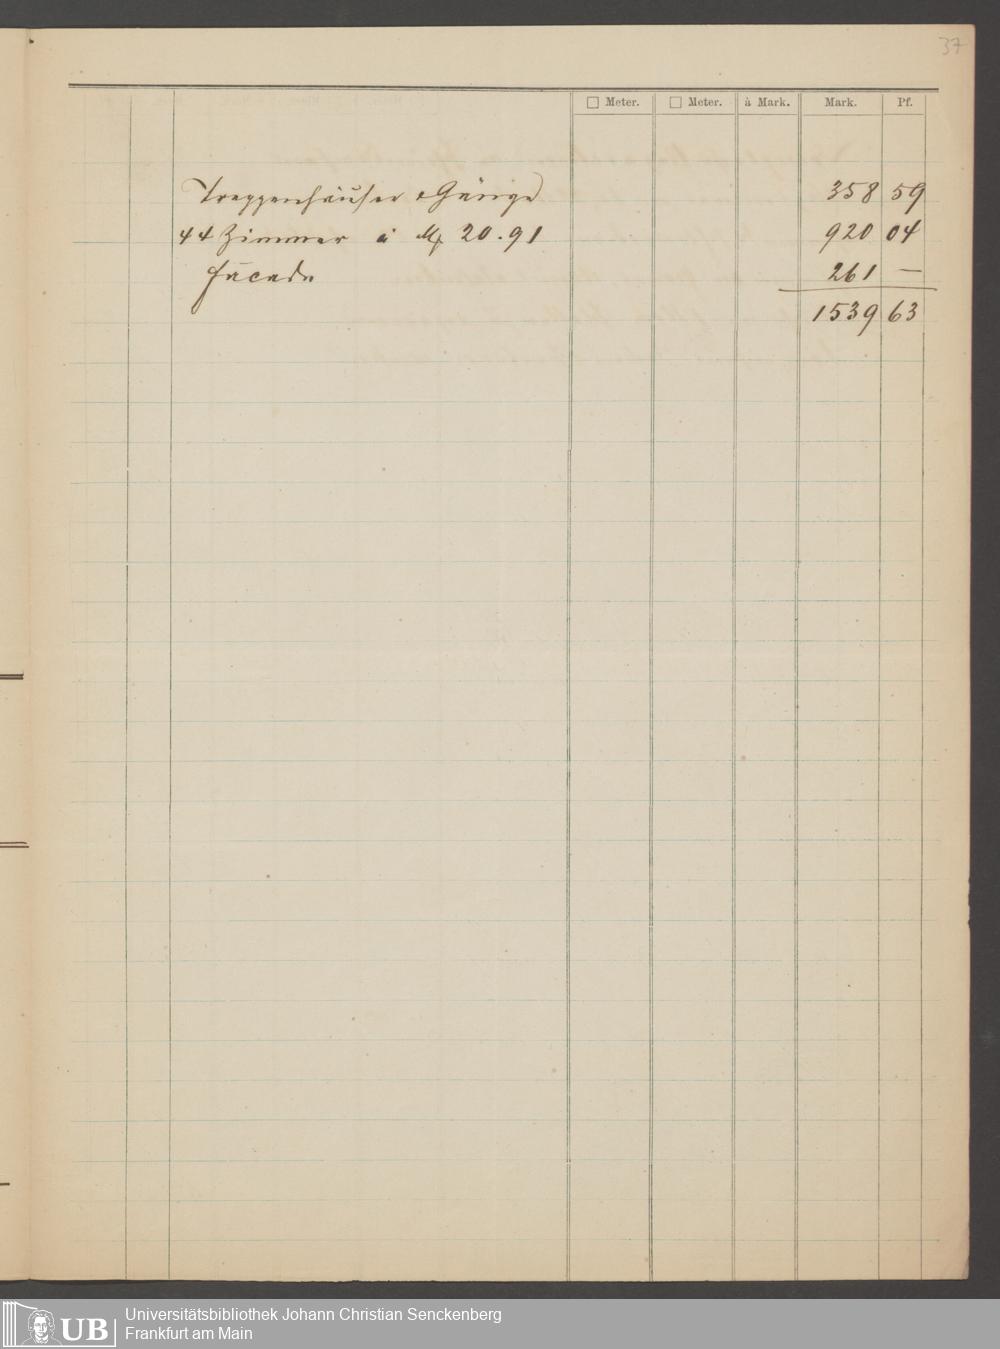 37
□ Meter. □ Meter. à Mark. Mark. Pf.
Treppenhäuser & Gänge 358 59
44 Zimmer à M 20.91 920 04
Façade 261 —
1539 63
UB Universitätsbibliothek Johann Christian Senckenberg
Frankfurt am Main